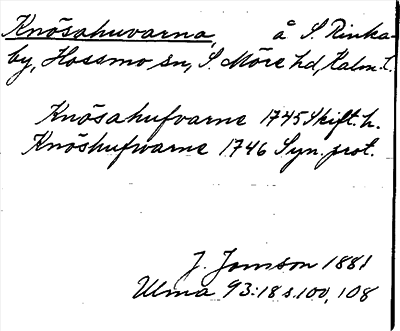 Knösahuvarna, å S. Rinka-
by, Hossmo sn, S. Möre hd, Kalm. l.
Knösahufvarne 1745 Skift. h.
Knöshufwarne 1746 Syn. prot.
J. Jonsson 1881
Ulma 93:18 s. 100, 108